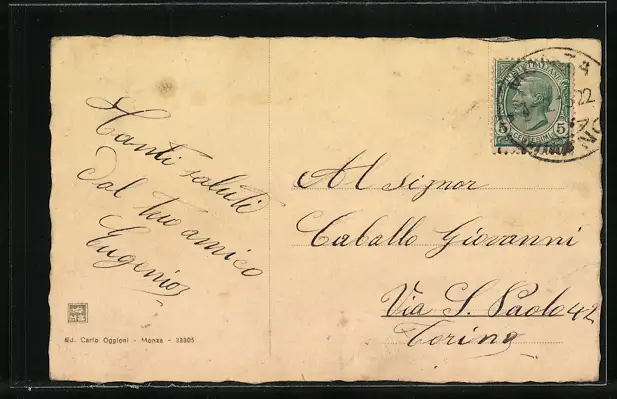 Tanti saluti
dal tuo amico
Eugenio
Ed. Carlo Oggioni - Monza - 33305
POSTE ITALIANE
5 5
CENTESIMI
22
Al signor
Caballo Giovanni
Via S. Paolo 42
Torino